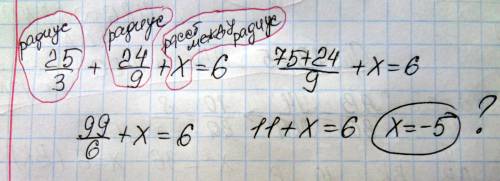 радиус радиус расст между радиус
25/3 + 24/9 + x = 6
75+24/9 + x = 6
99/6 + x = 6
11 + x = 6
x = -5 ?